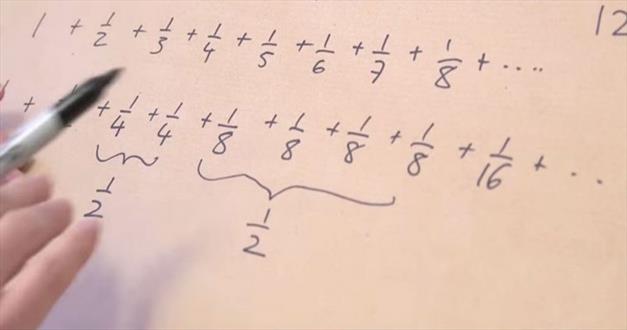 12
1 + 1/2 + 1/3 + 1/4 + 1/5 + 1/6 + 1/7 + 1/8 + ....
+ + 1/4 + 1/4 + 1/8 + 1/8 + 1/8 + 1/8 + 1/16 + ...
1/2 1/2